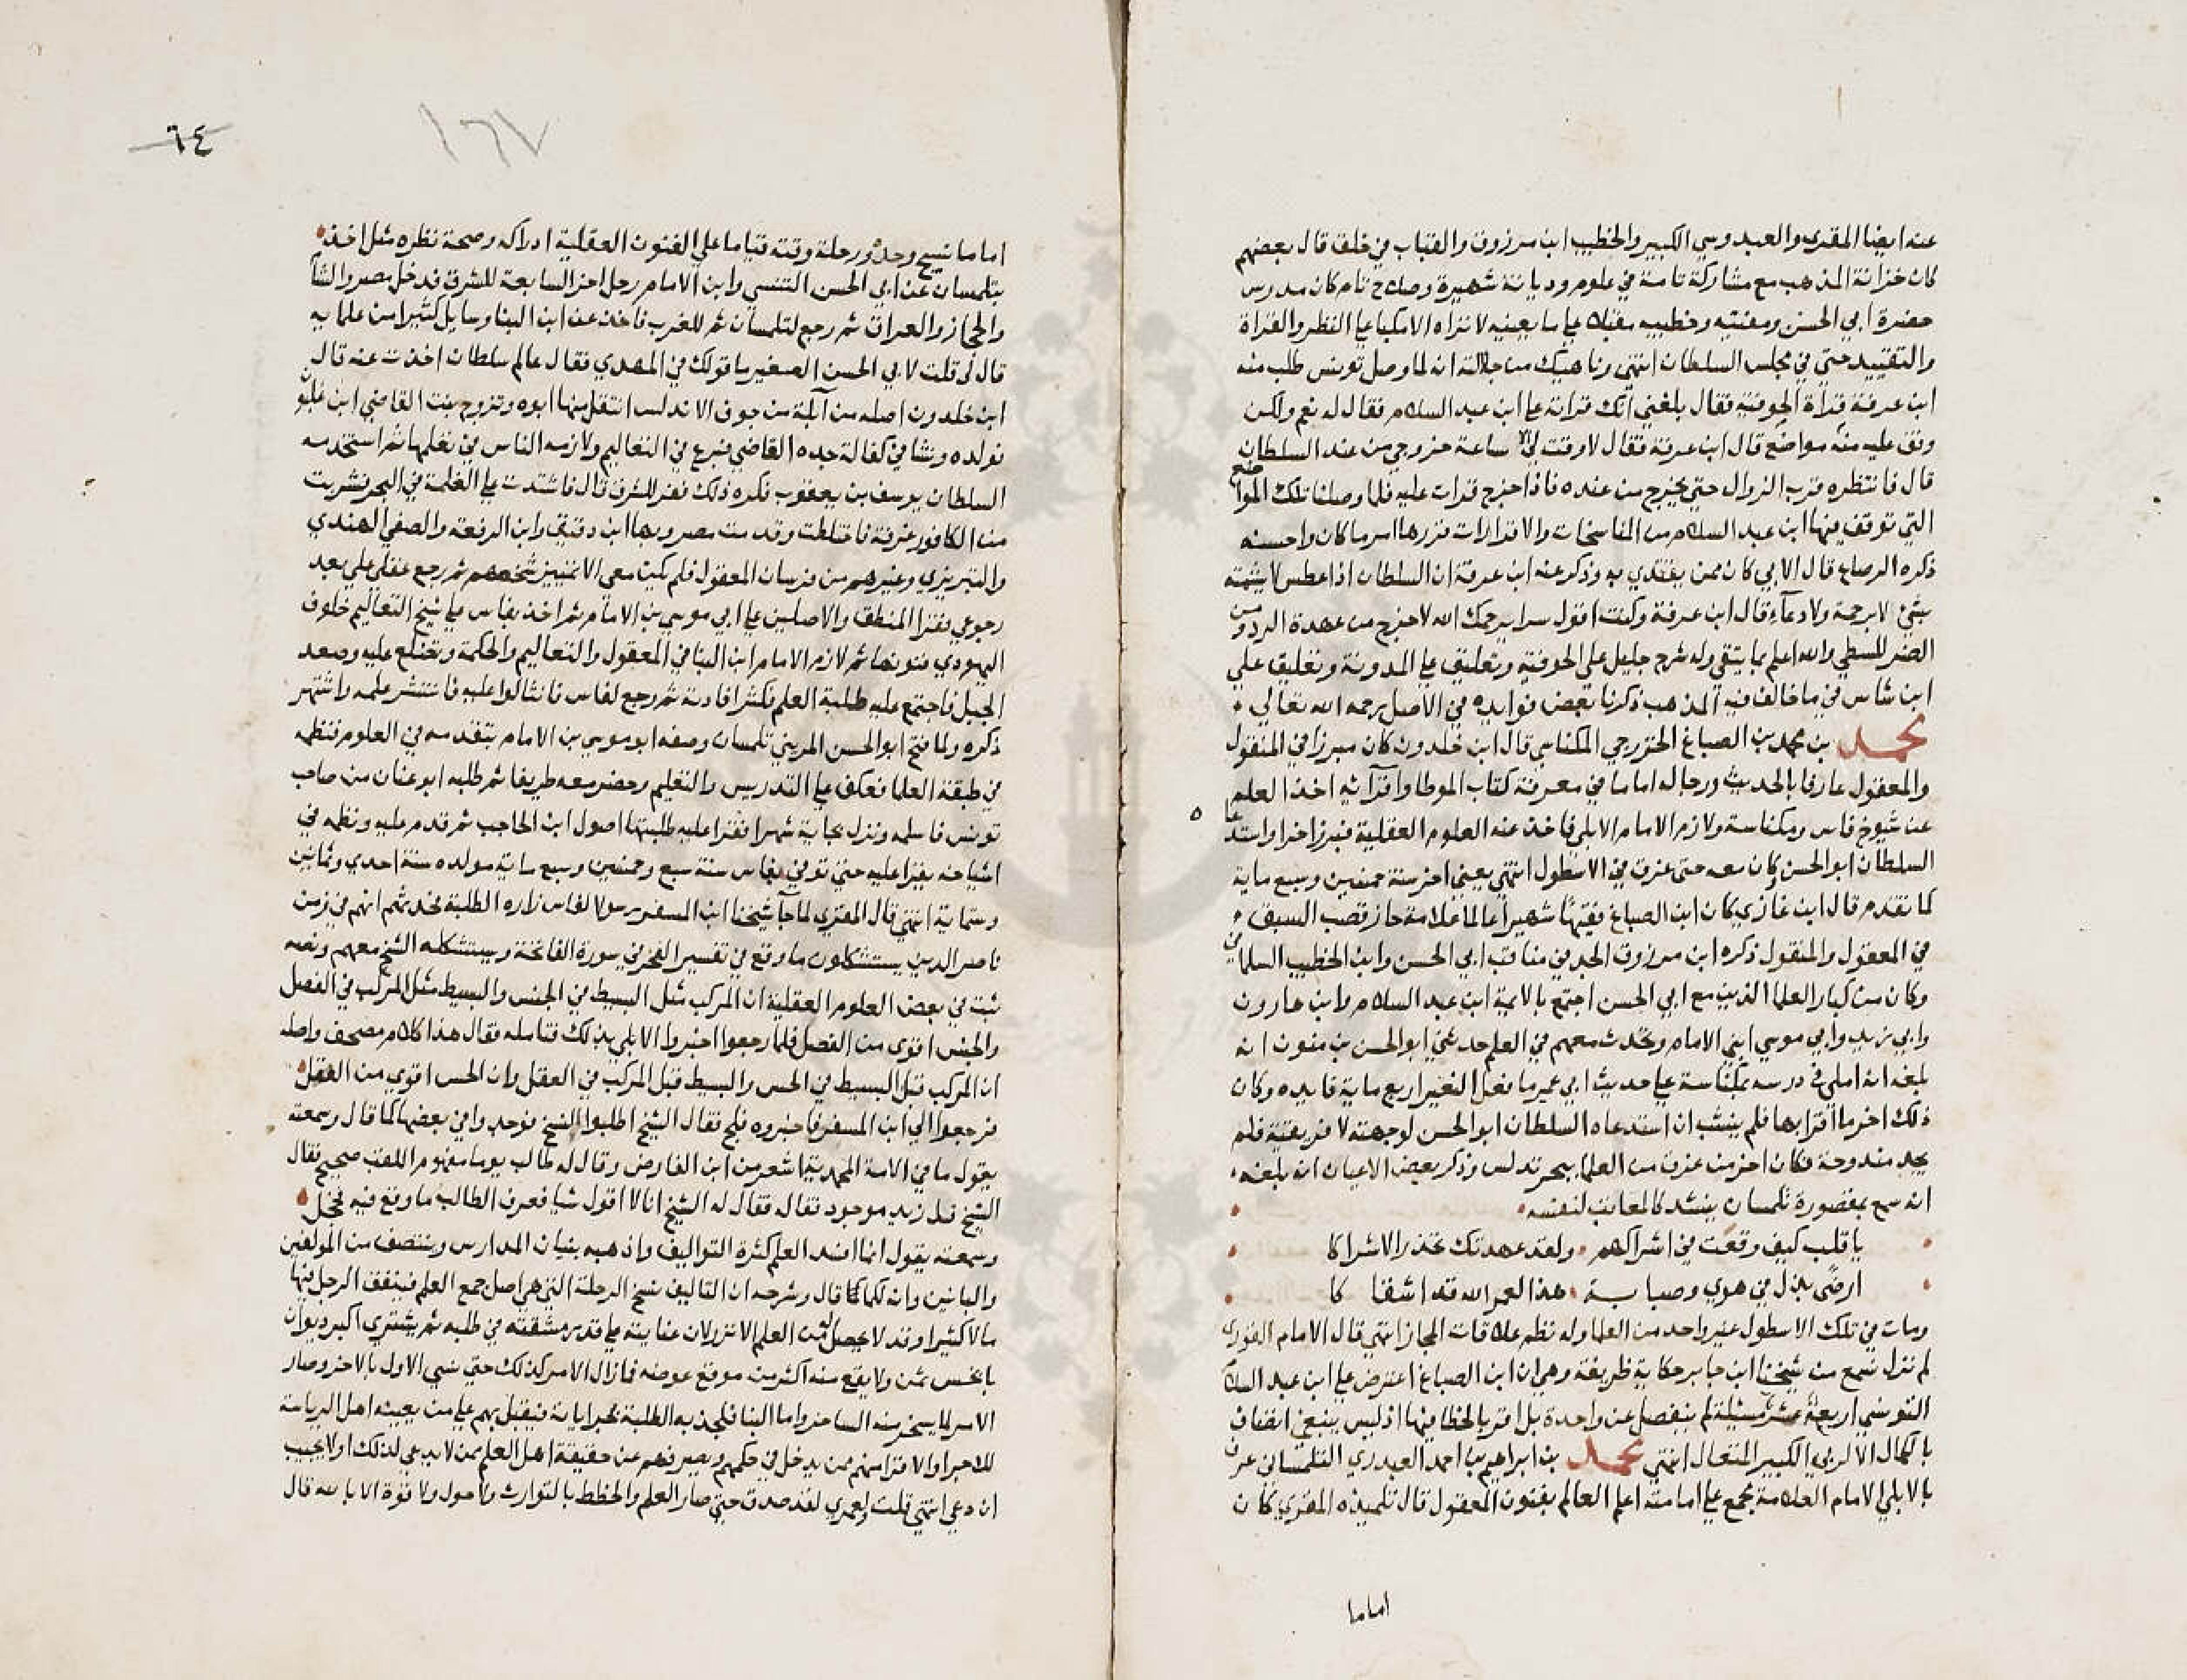 عنه ايضا المقري والعبدوسي الكبير والخطيب ابن مرزوق والقباب في خلق قال بعضهم
كان خزانة المذهب مع مشاركة تامة في علوم وديانة شهيرة وصلاح تام كان مدرس
حضرة ابي الحسن ومفتيه وخطيبه مقبلا على ما يعنيه لا تراه الا مكبا على النظر والقراة
والتقييد حتي في مجلس السلطان انتهي وناهيك من جلالته ان لما وصل تونس طلب منه
ابن عرفة قراة الحوفية فقال بلغني انك قراته على ابن عبد السلام فقال له نعم ولكن
وقف عليه منه مواضع قال ابن عرفة فقال لا وقت لي الا ساعة خروجي من عند السلطان
قال فانتظره قرب الزوال حتي يخرج من عنده فاذا خرج قرات عليه فلما وصلنا تلك المواضع
التي توقف فيها ابن عبد السلام من المناسخات والاقرارات قررها اسر ما كان واحسنه
ذكره الرصاع قال الابي كان ممن يقتدي به وذكر عنه ابن عرفة ان السلطان اذا عطس لا يشمته
بشئ لا برحمة ولا دعآء قال ابن عرفة وكنت اقول سرا يرحمك الله لاخرج من عهدة الرد ومن
الضر للسطي والله اعلم بما يتقي وله شرح جليل علي الحوفية وتعليق على المدونة وتعليق علي
ابن شاس في ما خالف فيه المذهب ذكرنا بعض فوايده في الاصل رحمه الله تعالي
محمد بن محمد بن الصباغ الخزرجي المكناسي قال ابن خلدون كان مبرزا في المنقول
والمعقول عارفا بالحديث ورجاله اماما في معرفة كتاب الموطا واقرآئه اخذ العلم
عن شيوخ فاس ومكناسة ولازم الامام الابلي فاخذ عنه العلوم العقلية فبرز اخرا واستدعا
السلطان ابو الحسن وكان معه حتى غرق في الاسطول انتهي يعني اخر سنة خمسين وسبع ماية
كما تقدم قال ابن غازي كان ابن الصباغ فقيها شهيرا عالما علامة حاز قصب السبق
في المعقول والمنقول ذكره ابن مرزوق الجد في مناقب ابي الحسن وابن الخطيب السلماني
وكان من كبار العلما الذين مع ابي الحسن اجتمع بالايمة ابن عبد السلام وابن هارون
وابي زيد وابي موسي ابني الامام وتحدث معهم في العلم حدثني ابو الحسن بن منون انه
بلغه انه املي في درسه بمكناسة على حديث ابي عمير ما فعل النغير اربع ماية فايده وكان
ذلك اخر ما اقرا بها فلم ينشب ان استدعاه السلطان ابو الحسن لوجهته لافريقية فلم
يجد مندوحة فكان اخر من غرق من العلما ببحر تدلس وذكر بعض الاعيان انه بلغه
انه سمع بمقصورة تلمسان ينشد كالمعاتب لنفسه
يا قلب كيف وقعت في اشراكهم ولقد عهدتك تحذر الاشراكا
ارضى بذل في هوي وصبابة هذا لعمر الله قد اشقاكا
ومات في تلك الاسطول غير واحد من العلما وله نظم علاقات المجاز انتهي قال الامام القوري
لم نزل نسمع من شيخنا ابن جابر حكاية ظريفة وهي ان ابن الصباغ اعترض على ابن عبد السلام
التونسي اربعة عشر مسئلة لم ينفصل عن واحدة بل اقر بالخطا فيها اذ ليس ينبغي اتصاف
بالكمال الا لربي الكبير المتعال انتهي محمد بن ابراهيم بن احمد العبدري التلمساني عرف
بالابلي الامام العلامة مجمع على امامته اعلم العالم بفنون المعقول قال تلميذه المقري كان
اماما
١٦٧
٦٤
اماما نسيج وحده ورحلة وقته قياما علي الفنون العقلية ادراكه وصحة نظره مثل اخذ
بتلمسان عن ابي الحسن التنسي وابن الامام رحل اخر السابعة للشرق فدخل مصر والشام
والحجاز والعراق ثم رجع لتلمسان ثم للغرب فاخذ عن ابن البنا وسايل كثيرا من علمايه
قال لي قلت لابي الحسن الصغير ما قولك في المهدي فقال عالم سلطان اخذت عنه قال
ابن خلدون اصله من آبلة من جوف الاندلس انتقل منها ابوه وتزوج بنت القاضي ابن غلبون
فولده ونشا في كفالة جده القاضي فبرع في التعاليم ولازمه الناس في تعلمها ثم استخدمه
السلطان يوسف بن يعقوب فكره ذلك ففر للشرق قال فاشتدت على الغلمة في البحر فشربت
من الكافور غرفة فاختلطت وقدمت مصر وبها ابن دقيق وابن الرفعة والصفي الهندي
والتبريزي وغيرهم من فرسان المعقول فلم يكن معي الا تمييز شخصهم ثم رجع عقلي علي بعد
رجوعي فقرا المنطق والاصلين على ابي موسي بن الامام ثم اخذ بفاس على شيخ التعاليم خلوف
اليهودي فنونها ثم لازم الامام ابن البنا في المعقول والتعاليم والحكمة وتضلع عليه وصعد
الجبل فاجتمع عليه طلبة العلم فكثر افادته ثم رجع لفاس فانثالوا عليه فانتشر علمه واشتهر
ذكره ولما فتح ابو الحسن المريني تلمسان وصفه ابو موسي بن الامام بتقدمه في العلوم فنظمه
في طبقة العلما فعكف على التدريس والتعليم وحضر معه طريفا ثم طلبه ابو عنان من صاحب
تونس فاسلمه ونزل بجاية شهرا فقرا عليه طلبتها اصول ابن الحاجب ثم قدم عليه ونظمه في
اشياخه يقرا عليه حتى توفي بفاس سنة سبع وخمسين وسبع ماية مولده سنة احدي وثمانين
وستماية انتهي قال المقري لما جآ شيخنا ابن المسفر رسولا لفاس زاره الطلبة فحدثهم انهم في زمن
ناصر الدين يستشكلون ما وقع في تفسير الفخر في سورة الفاتحة ويستشكله الشيخ معهم ونصه
ثبت في بعض العلوم العقلية ان المركب مثل البسيط في الجنس والبسيط مثل المركب في الفصل
والجنس اقوى من الفصل فلما رجعوا اخبروا الابلي بذلك فتامله فقال هذا كلام مصحف واصله
ان المركب قبل البسيط في الحس والبسيط قبل المركب في العقل وان الحس اقوي من العقل
فرجعوا الي ابن المسفر فاخبروه فلج فقال الشيخ اطلبوا النسخ فوجدوا في بعضها كما قال وسمعته
يقول ما في الامة المحمدية اشعر من ابن الفارض وقال له طالب يوما مفهوم اللقب صحيح فقال
الشيخ قل زيد موجود فقاله فقال له الشيخ انا لا اقول شيا فعرف الطالب ما وقع فيه فخجل
وسمعته يقول انما افسد العلم كثرة التواليف واذهبه بنيان المدارس وينتصف من المولفين
والبانين وانه لكما قال وشرحه ان التاليف نسخ الرحلة التي هي اصل جمع العلم فينفق الرجل فيها
مالا كثيرا وقد لا يحصل له من العلم الا نزر لان عنايته على قدر مشقته في طلبه ثم يشتري اكبر ديوان
بابخس ثمن ولا يقع منه اكثر من موقع عوضه فما زال الامر كذلك حتي نسي الاول بالاخر وصار
الامر لما يسخر منه الساخر واما البنا فلجذبه الطلبة لجرايانه فيقبل بهم علي من يعينه اهل الرياسة
للاجرا والاقرا منهم ممن يدخل في حكمهم ويصرفهم عن حقيقة اهل العلم ممن لا يدعي لذلك اولا يجيب
ان دعي انتهي قلت ولعمري لقد صدق حتي صار العلم والخطط بالتوارث ولا حول ولا قوة الا بالله قال